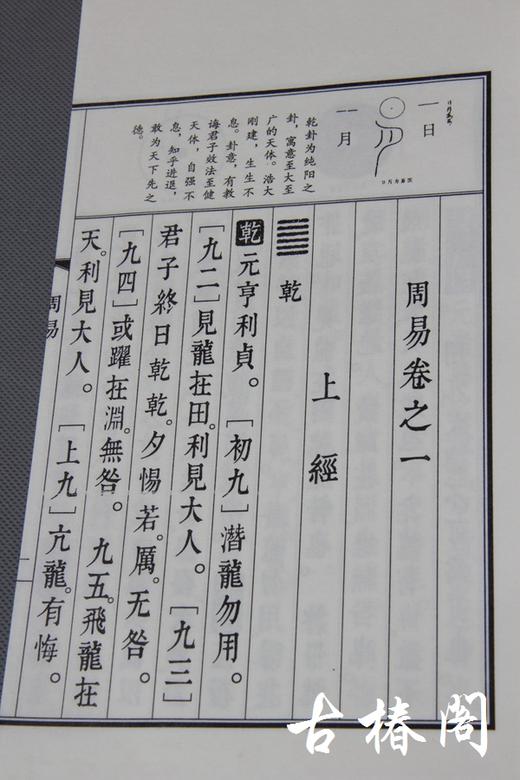 一日
一月
乾卦为纯阳之
卦，寓意至大至
广的天体。浩大
刚建，生生不
息。卦意，有教
诲君子效法至健
天体，自强不
息，知乎进退，
敢为天下先之
德。
周易卷之一
上經
乾
乾元亨利貞。［初九］潛龍勿用。
［九二］見龍在田。利見大人。［九三］
君子終日乾乾。夕惕若。厲。无咎。
［九四］或躍在淵。無咎。九五。飛龍在
天。利見大人。［上九］亢龍。有悔。
周易
一
古椿阁